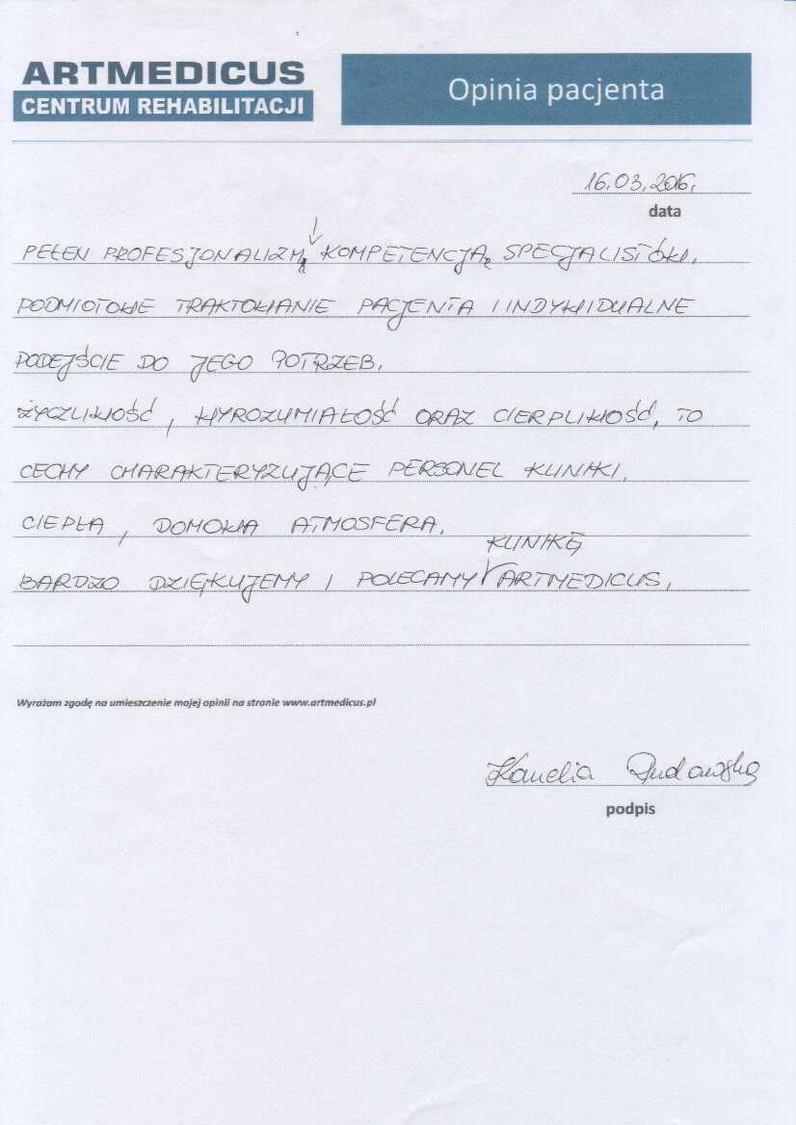 ARTMEDICUS
CENTRUM REHABILITACJI
Opinia pacjenta
16.03.2016.
data
PEŁEN PROFESJONALIZM, I KOMPETENCJA SPECJALISTÓW.
PODMIOTOWE TRAKTOWANIE PACJENTA I INDYWIDUALNE
PODEJŚCIE DO JEGO POTRZEB.
ŻYCZLIWOŚĆ, WYROZUMIAŁOŚĆ ORAZ CIERPLIWOŚĆ, TO
CECHY CHARAKTERYZUJĄCE PERSONEL KLINIKI.
CIEPŁA, DOMOWA ATMOSFERA.
BARDZO DZIĘKUJEMY I POLECAMY KLINIKĘ ARTMEDICUS.
Wyrażam zgodę na umieszczenie mojej opinii na stronie www.artmedicus.pl
podpis